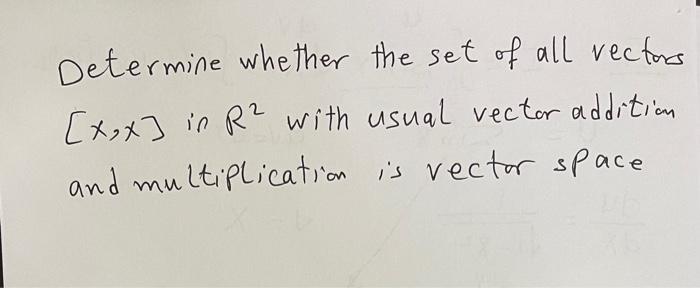 Determine whether the set of all vectors
[x,x] in R² with usual vector addition
and multiplication is vector space